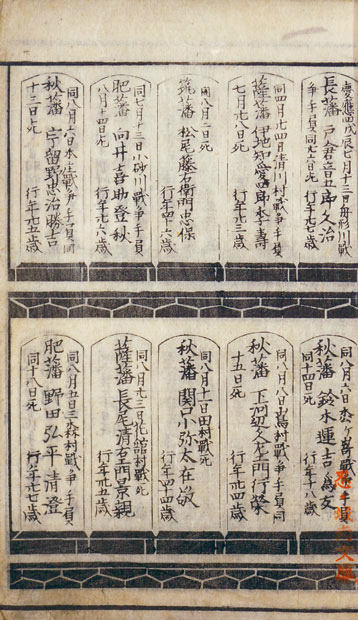 慶應四戊辰七月十三日舟形川戦
争手負同月六日死
長藩 戸倉音五郎久治
行年廿七歳
同四月廿四日清川村戦争手負
七月廿八日死
薩藩 伊地知富郎季壽
行年廿三歳
同八月二日死
筑藩 松尾藤右衛門忠保
行年四十六歳
同七月十三日小砂川戦争手負
八月十四日死
肥藩 向井喜助登秋
行年廿六歳
同八月六日 戦争手負同
十三日死
秋藩 宇留野忠治勝吉
行年廿五歳
同八月六日 戦手負
同十四日死
秋藩 鈴木運吉為友
行年十八歳
同八月八日 村戦争手負同
十五日死
秋藩 行榮
行年廿四歳
同八月十一日田村戦死
秋藩 関口小弥太在
行年四十四歳
同八月廿三日花舘村戦死
薩藩 長尾清右エ門景親
行年廿五歳
同八月五日三森村戦争手負
同十八日死
肥藩 野田弘平清澄
行年廿七歳